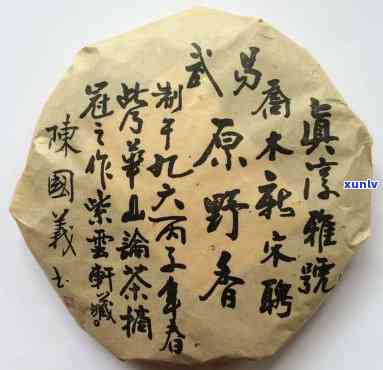 眞淳雅號
喬木新宋聘
易武
原野香
制于九六丙子年春
此乃華山論茶摘
冠之作紫雲軒藏。
陳國義
xunlv